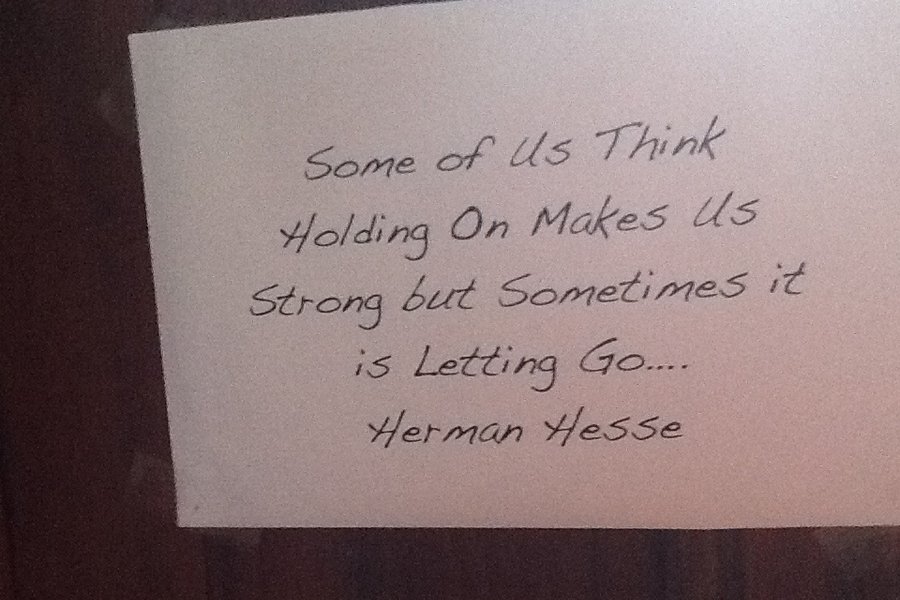 Some of Us Think
Holding On Makes Us
Strong but Sometimes it
is Letting Go....
Herman Hesse